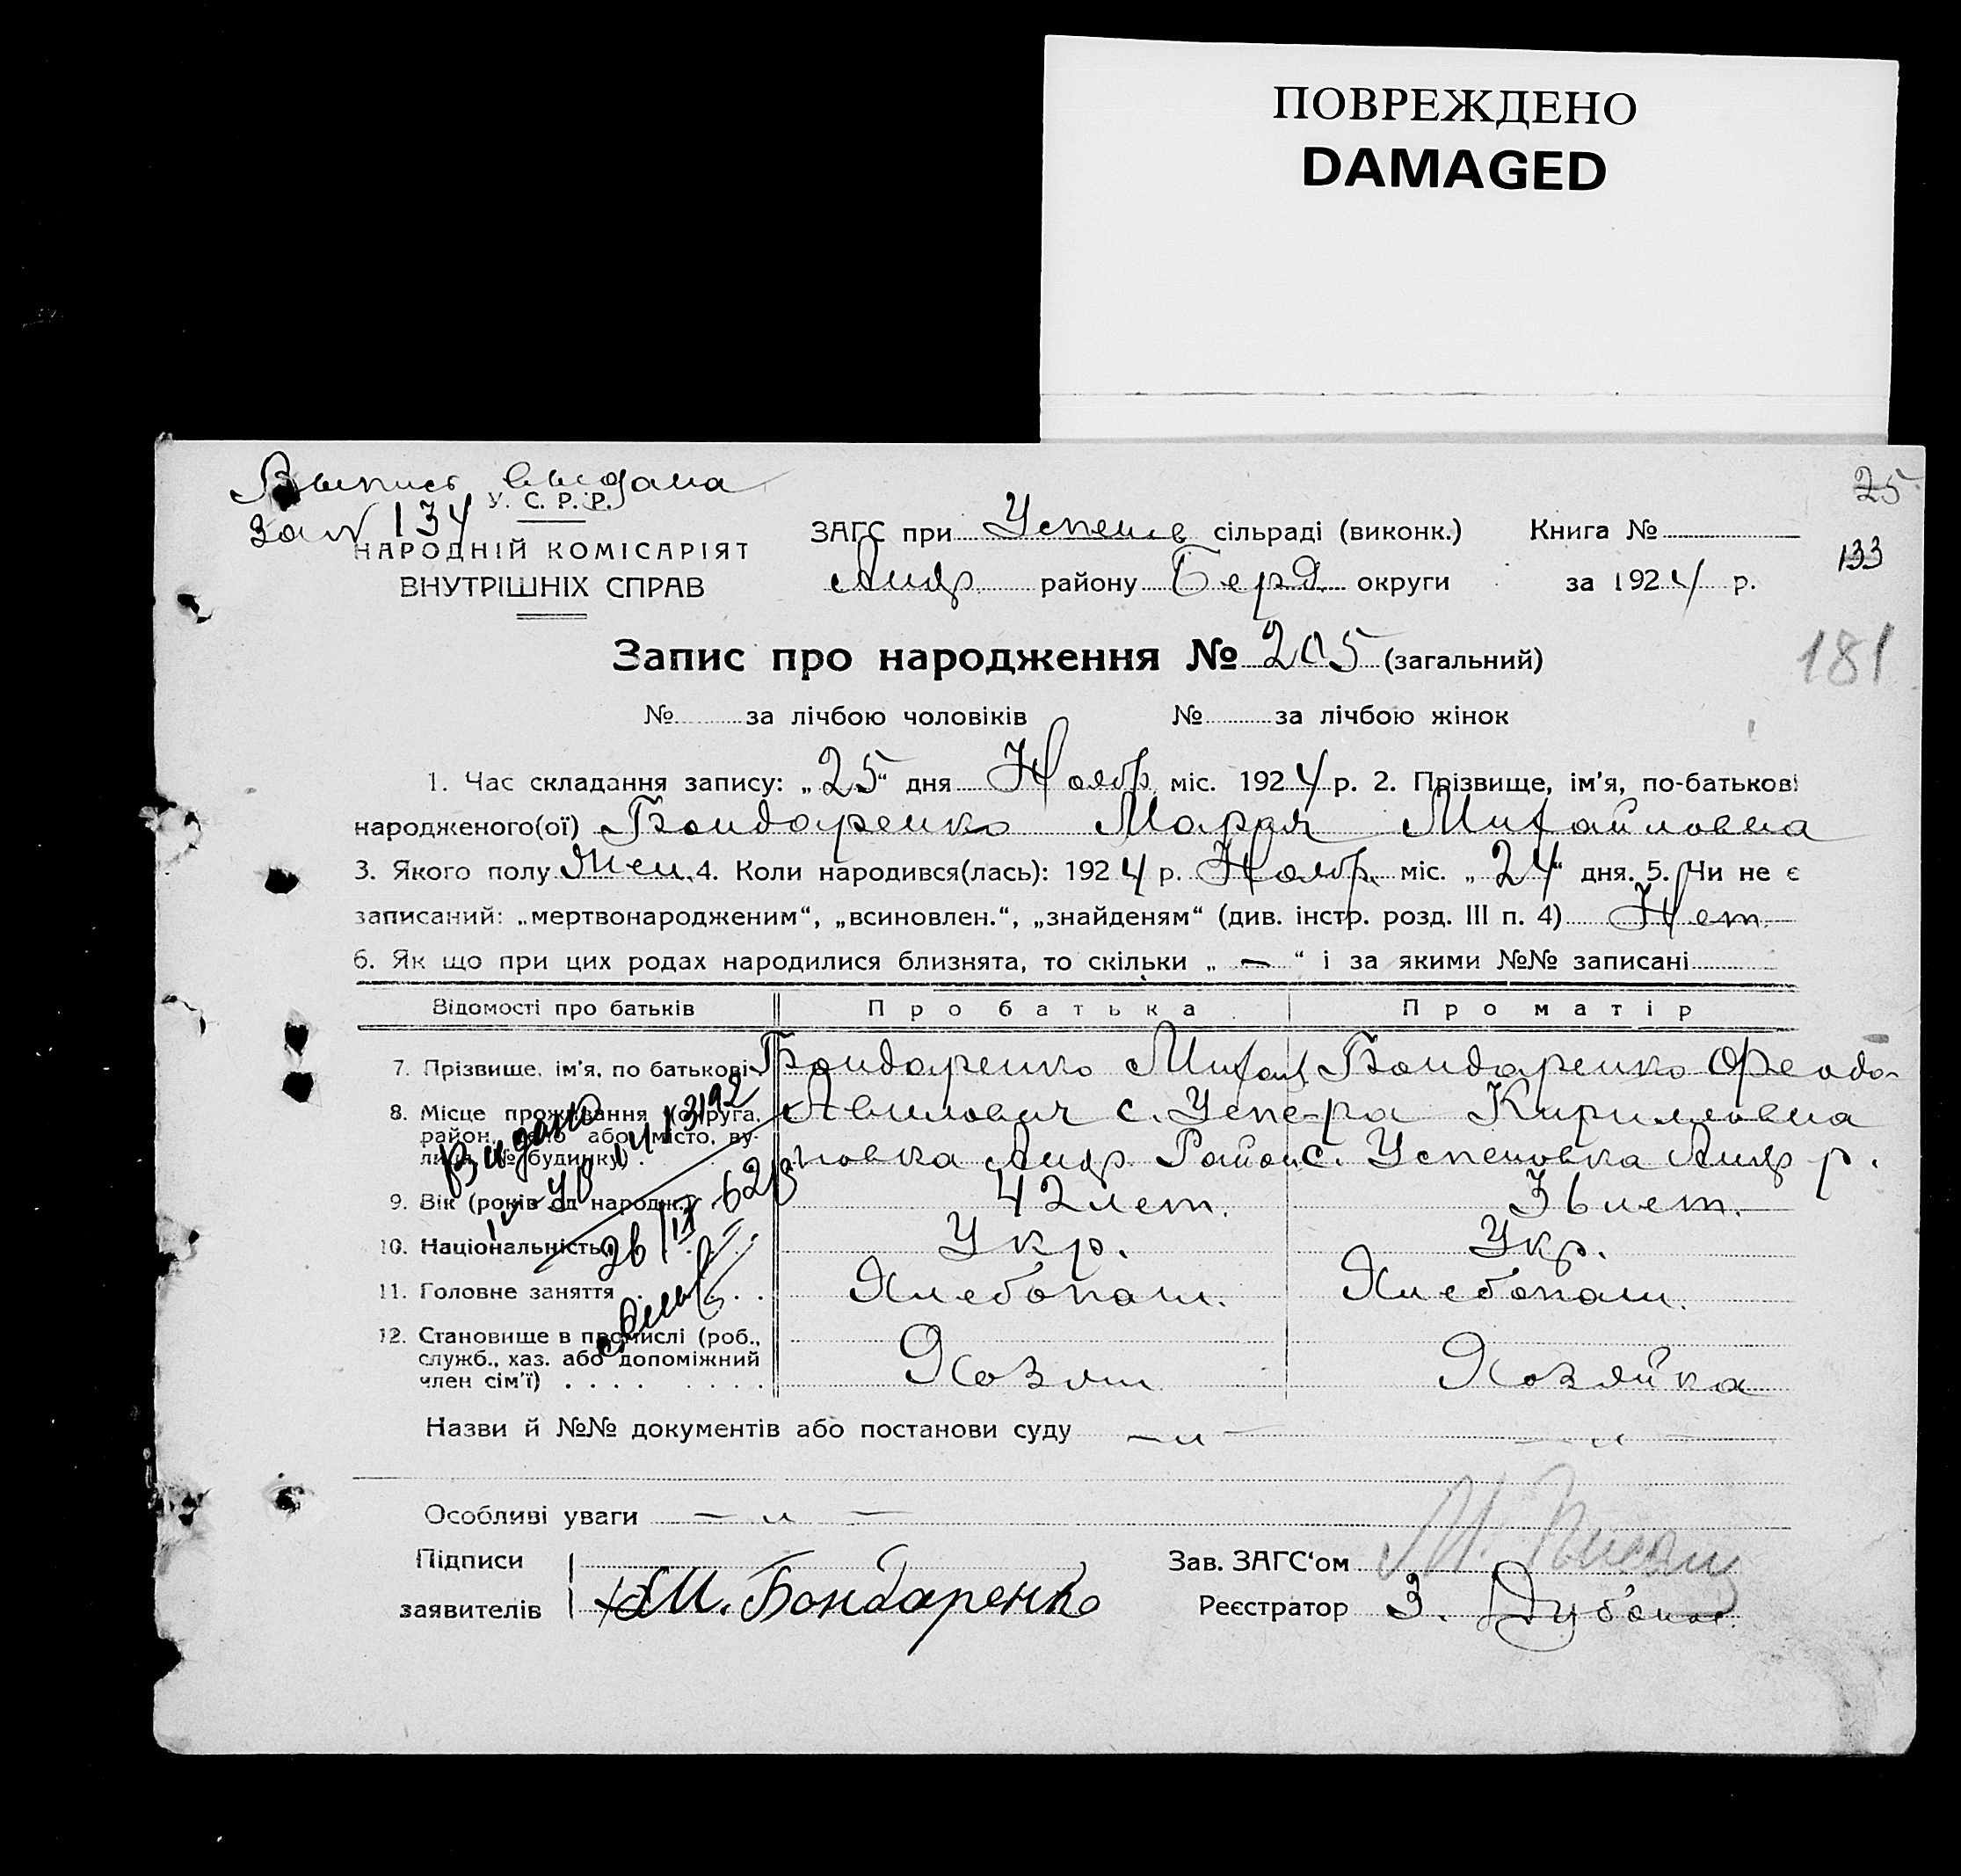 ПОВРЕЖДЕНО
DAMAGED
Выпись выдана
за № 134
У. С. Р. Р.
НАРОДНІЙ КОМІСАРІЯТ
ВНУТРІШНІХ СПРАВ
25
133
181
ЗАГС при Успенов сільраді (виконк.) Книга №
Андр. району Берд. округи за 1924 р.
Запис про народження № 205 (загальний)
№ за лічбою чоловіків № за лічбою жінок
1. Час складання запису: „25“ дня Ноябр. міс. 1924 р. 2. Прізвище, ім'я, по-батькові
народженого(ої) Бондаренко Мария Михайловна
3. Якого полу Жен. 4. Коли народився(лась): 1924 р. Ноябр. міс. „24“ дня. 5. Чи не є
записаний: „мертвонародженим“, „всиновлен.“, „знайденям“ (див. інстр. розд. III п. 4) Нет.
6. Як що при цих родах народилися близнята, то скільки „ — “ і за якими №№ записані
Відомості про батьків Про батька Про матір
7. Прізвище, ім'я, по батькові Бондаренко Михаил Бондаренко Феодо-
8. Місце проживання (округа, Авилович с. Успе- ра Кирилловна
район, село або місто, ву- новка Андр. Район с. Успеновка Андр р.
лиця, № будинку)
Видано
26/IX-62
9. Вік (років од народж.) 42 лет. 36 лет.
10. Національність Укр. Укр.
11. Головне заняття Хлебопаш. Хлебопаш.
12. Становище в промислі (роб., служб., хаз. або допоміжний член сім'ї) Хозяин Хозяйка
Назви й №№ документів або постанови суду — „ — — „ —
Особливі уваги — „ —
Підписи Зав. ЗАГС‘ом
заявителів М. Бондаренко Реєстратор З.